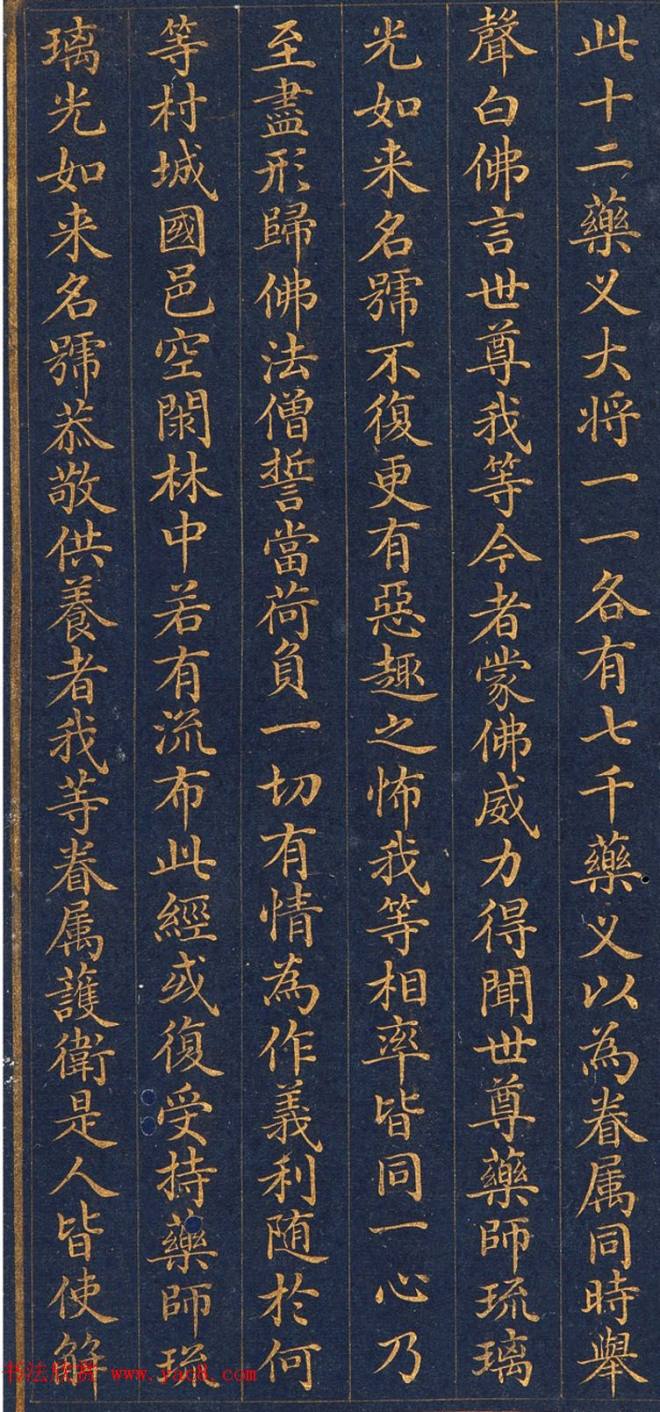 此十二藥叉大将一一各有七千藥叉以為眷属同時舉
聲白佛言世尊我等今者蒙佛威力得聞世尊藥師琉璃
光如来名號不復更有惡趣之怖我等相率皆同一心乃
至盡形歸佛法僧誓當荷負一切有情為作義利随於何
等村城國邑空閑林中若有流布此經或復受持藥師琉
璃光如来名號恭敬供養者我等眷属護衛是人皆使解
书法欣赏 www.yac8.com